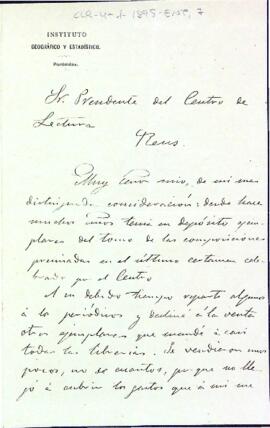 CLR-U-1-1895-Ent, 7
INSTITUTO
GEOGRÁFICO Y ESTADÍSTICO.
Particular.
Sr. Presidente del Centro de
Lectura
Reus.
Muy Señor mio, de mi mas
distinguida consideración: desde hace
muchos años tenia en depósito ejem-
plares del tomo de las composiciones
premiadas en el último certamen cele-
brado por el Centro
A su debido tiempo repartí algunos
á los periódicos y destiné á la venta
otros ejemplares que mandé á casi
todas las librerias. Se vendieron unos
pocos, no se cuantos, porque no lle-
gó á cubrir los gastos que á mi me